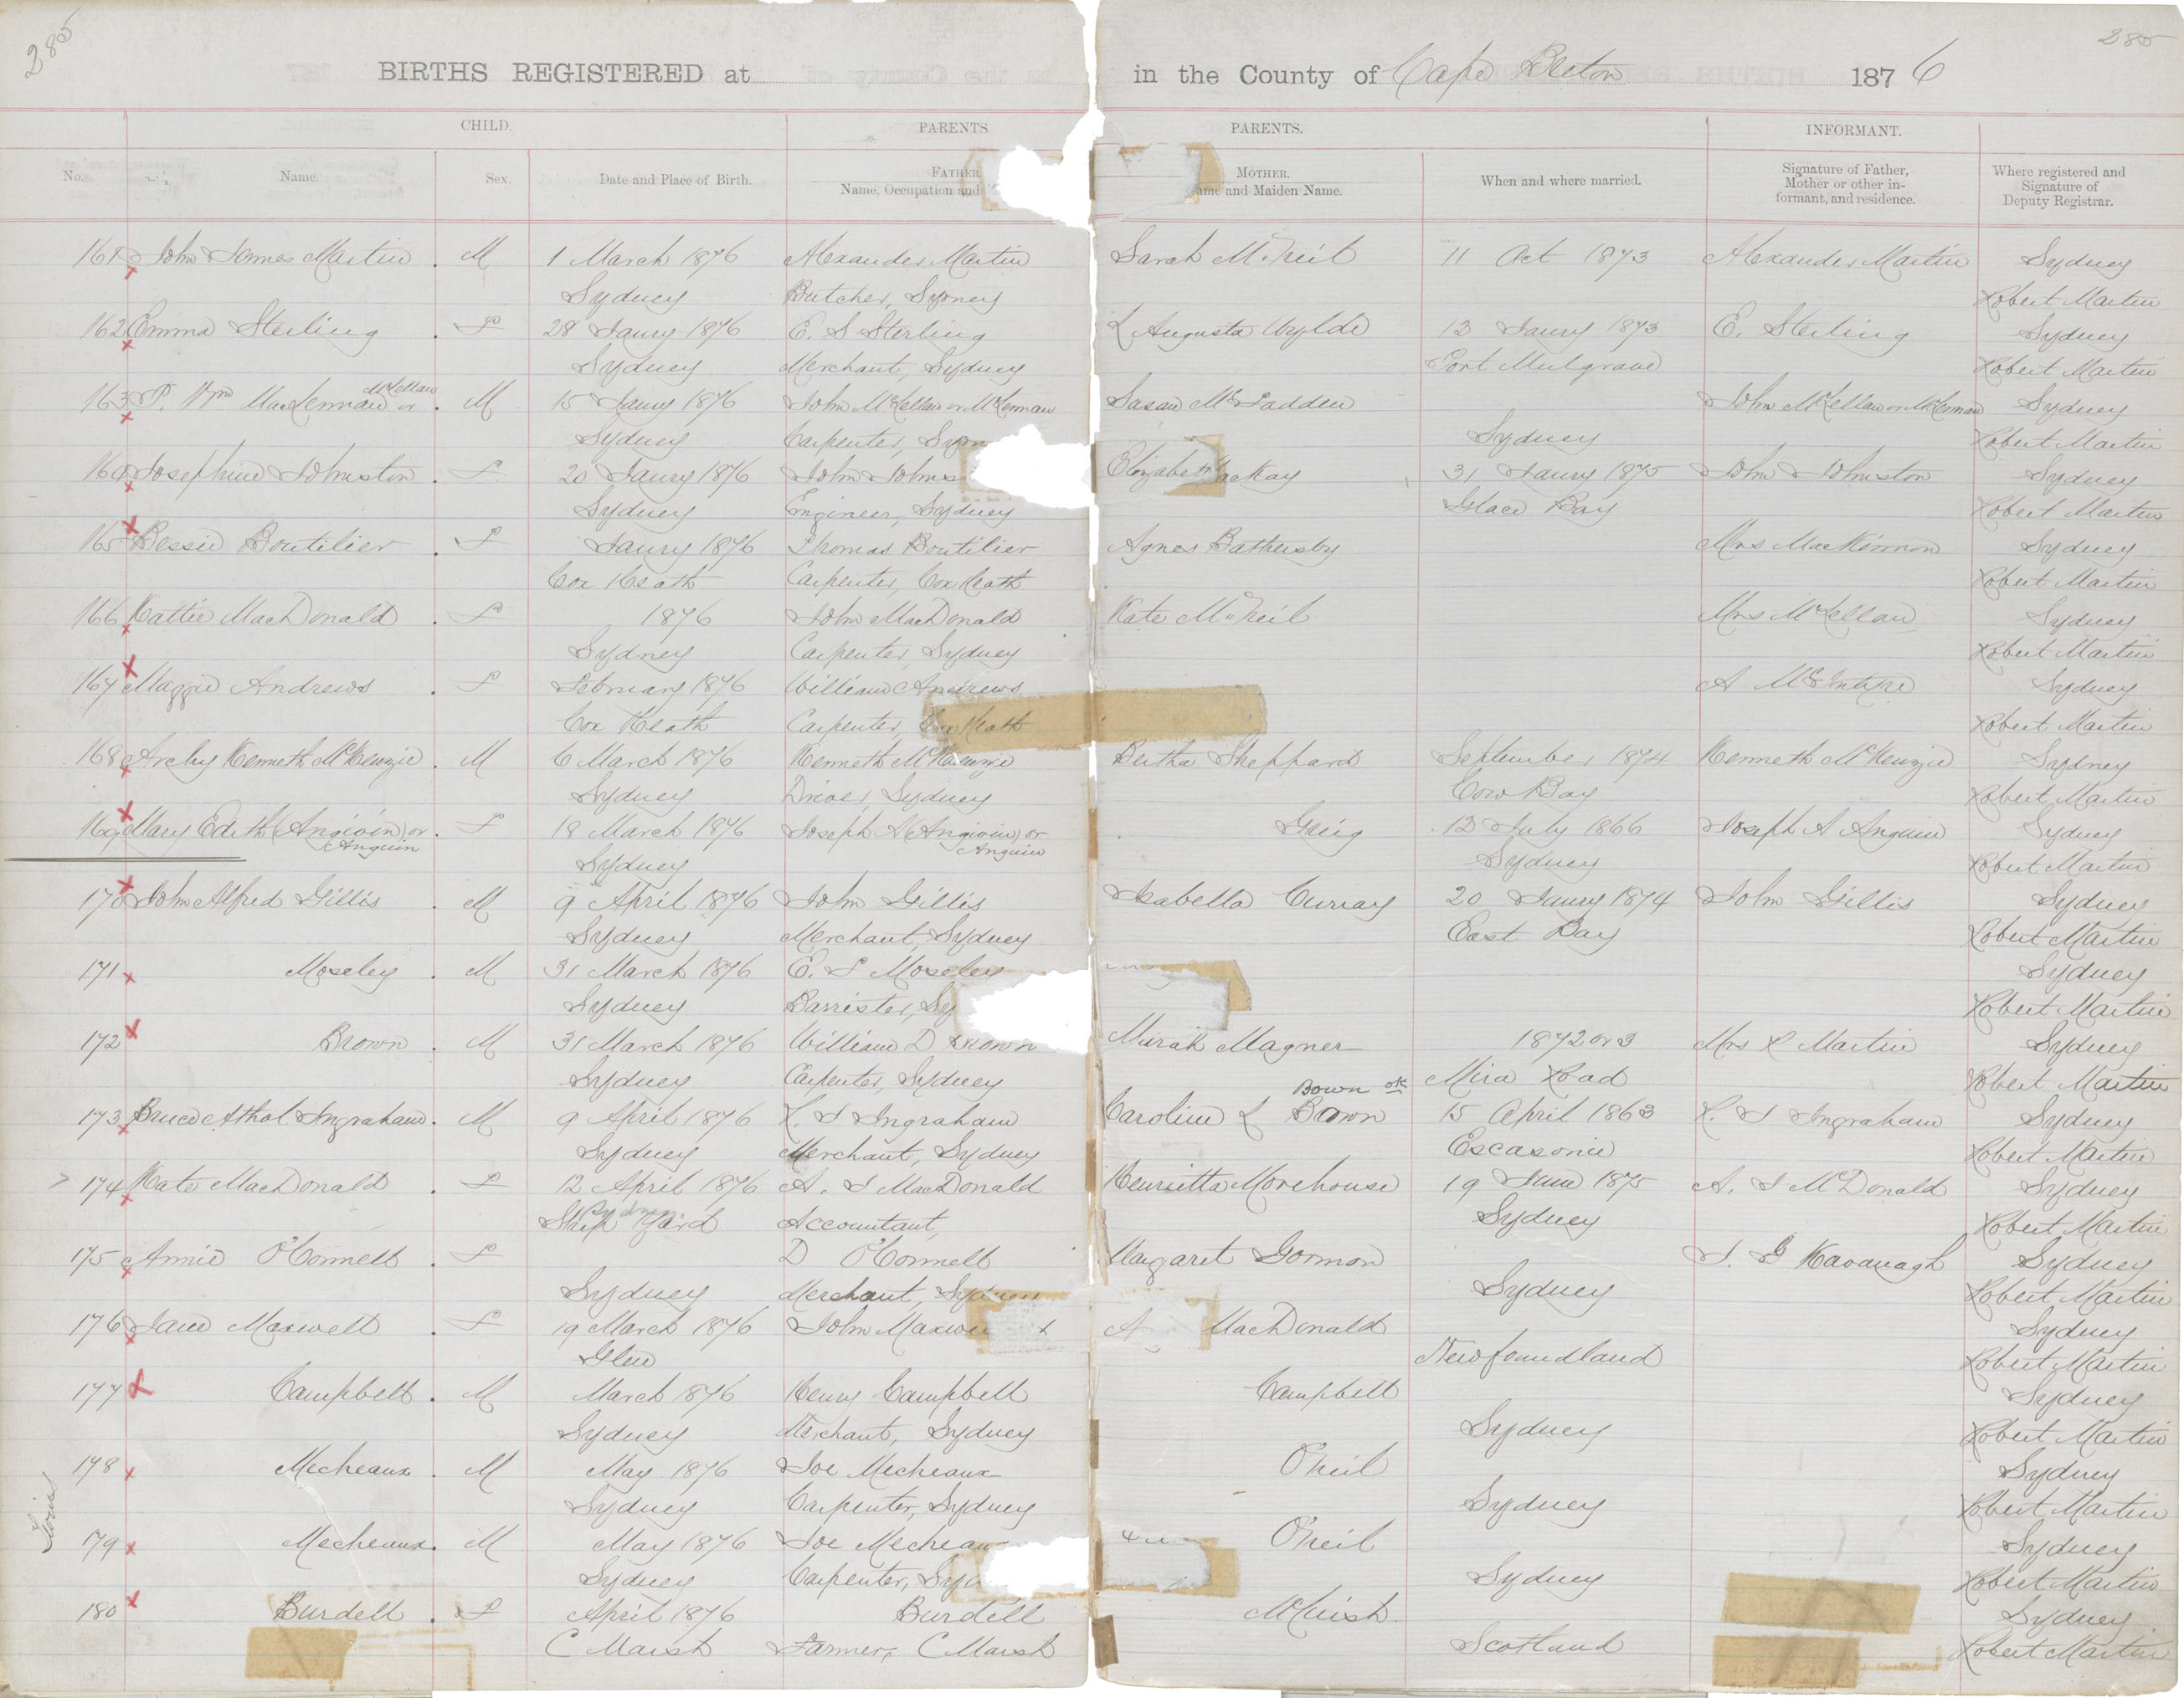 285
285
BIRTHS REGISTERED at in the County of Cape Breton 1876
CHILD. PARENTS PARENTS. INFORMANT.
No. Name. Sex. Date and Place of Birth. FATHER. Name, Occupation and MOTHER. ame and Maiden Name. When and where married. Signature of Father, Mother or other informant, and residence. Where registered and Signature of Deputy Registrar.
161 John James Martin . M 1 March 1876 Alexander Martin Sarah McNeil 11 Oct 1873 Alexander Martin Sydney
Sydney Butcher, Sydney Robert Martin
162 Emma Sterling . F 28 Jany 1876 E. S Sterling L Augusta Wylde 13 Jany 1873 E. Sterling Sydney
Sydney Merchant, Sydney Port Mulgrave Robert Martin
McLellan
163 P. Wm MacLennan or . M 15 Jany 1876 John McLellan or McLennan Susan McFadden John McLellan or McLennan Sydney
Sydney Carpenter, Sydn Sydney Robert Martin
164 Josephine Johnston . F 20 Jany 1876 John Johns Elizabeth MacKay 31 Jany 1875 John Johnston Sydney
Sydney Engineer, Sydney Glace Bay Robert Martin
165 Bessie Boutilier . F Jany 1876 Thomas Boutilier Agnes Battersby Mrs MacKinnon Sydney
Cox Heath Carpenter, Cox Heath Robert Martin
166 Kattie MacDonald . F 1876 John MacDonald Kate McNeil Mrs McLellan Sydney
Sydney Carpenter, Sydney Robert Martin
167 Maggie Andrews . F February 1876 William Andrews A McIntyre Sydney
Cox Heath Carpenter, Cox Heath Robert Martin
168 Archy Kenneth McKenzie . M 6 March 1876 Kenneth McKenzie Bertha Sheppard September 1874 Kenneth McKenzie Sydney
Sydney Driver, Sydney Cow Bay Robert Martin
169 Mary Edith (Angivin) or . F 18 March 1876 Joseph A (Angivin) or Greig 12 July 1866 Joseph A Anguin Sydney
Anguin Sydney Anguin Sydney Robert Martin
170 John Alfred Gillis . M 9 April 1876 John Gillis Isabella Curray 20 Jany 1874 John Gillis Sydney
Sydney Merchant, Sydney East Bay Robert Martin
171 Moseley . M 31 March 1876 E. T Moseley Sydney
Sydney Barrister, Sy Robert Martin
172 Brown . M 31 March 1876 William D Brown Murah Magner 1872 or 3 Mrs R Martin Sydney
Sydney Carpenter, Sydney Mira Road Robert Martin
Bown ok
173 Bruce Athol Ingraham . M 9 April 1876 L. S Ingraham Caroline L Bown 15 April 1863 L. S Ingraham Sydney
Sydney Merchant, Sydney Escasonie Robert Martin
174 Kate MacDonald . F 12 April 1876 A. J MacDonald Henrietta Morehouse 19 June 1875 A. J McDonald Sydney
Ship Yard Accountant, Sydney Robert Martin
175 Annie O'Connell . F D O'Connell Margaret Gormon J. G Kavanagh Sydney
Sydney Merchant, Sydney Sydney Robert Martin
176 Jane Maxwell . F 19 March 1876 John Maxwe A MacDonald Sydney
Glen Newfoundland Robert Martin
177 Campbell . M March 1876 Henry Campbell Campbell Sydney
Sydney Merchant, Sydney Sydney Robert Martin
178 Mecheaux . M May 1876 Joe Mecheaux O'Neil Sydney
Sydney Carpenter, Sydney Sydney Robert Martin
179 Mecheaux . M May 1876 Joe Mecheau O'Neil Sydney
Sydney Carpenter, Syd Sydney Robert Martin
180 Burdell . F April 1876 Burdell McCuish Sydney
C Marsh Farmer, C Marsh Scotland Robert Martin